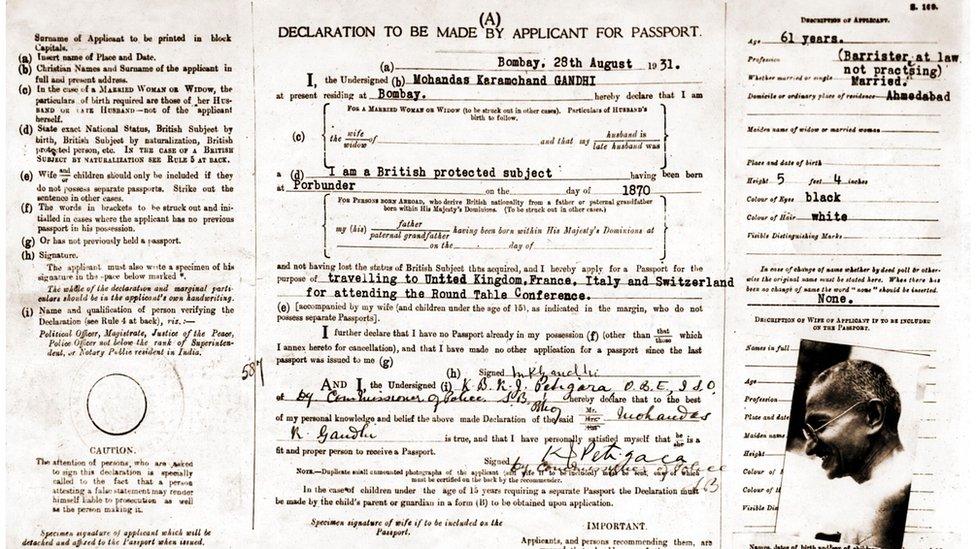 S. 169.
Surname of Applicant to be printed in block
Capitals.
(a) Insert name of Place and Date.
(b) Christian Names and Surname of the applicant in
full and present address.
(c) In the case of a MARRIED WOMAN OR WIDOW, the
particulars of birth required are those of HER HUS-
BAND OR LATE HUSBAND—not of the applicant
herself.
(d) State exact National Status, British Subject by
birth, British Subject by naturalization, British
protected person, etc. IN THE CASE OF A BRITISH
SUBJECT BY NATURALIZATION SEE RULE 5 AT BACK.
(e) Wife and/or children should only be included if they
do not possess separate passports. Strike out the
sentence in other cases.
(f) The words in brackets to be struck out and ini-
tialled in cases where the applicant has no previous
passport in his possession.
(g) Or has not previously held a passport.
(h) Signature.
The applicant must also write a specimen of his
signature in the space below marked *.
The whole of the declaration and marginal parti-
culars should be in the applicant's own handwriting.
(i) Name and qualification of person verifying the
Declaration (see Rule 4 at back), viz.:—
Political Officer, Magistrate, Justice of the Peace,
Police Officer not below the rank of Superinten-
dent, or Notary Public resident in India.
587
CAUTION.
The attention of persons, who are asked
to sign this declaration is specially
called to the fact that a person
attesting a false statement may render
himself liable to prosecution as well
as the person making it.
Specimen signature of applicant which will be
detached and affixed to the Passport when issued.
(A)
DECLARATION TO BE MADE BY APPLICANT FOR PASSPORT.
(a) Bombay, 28th August 1931.
I, the Undersigned (b) Mohandas Karamchand GANDHI
at present residing at Bombay. hereby declare that I am
FOR A MARRIED WOMAN OR WIDOW (to be struck out in other cases). Particulars of HUSBAND'S
birth to follow.
(c) the wife/widow of and that my husband is/late husband was
a (d) I am a British protected subject having been born
at Porbunder on the day of 1870
FOR PERSONS BORN ABROAD, who derive British nationality from a father or paternal grandfather
born within His Majesty's Dominions. (To be struck out in other cases.)
my (his) father/paternal grandfather having been born within His Majesty's Dominions at
on the day of
and not having lost the status of British Subject thus acquired, and I hereby apply for a Passport for the
purpose of travelling to United Kingdom, France, Italy and Switzerland
for attending the Round Table Conference.
(e) [accompanied by my wife (and children under the age of 15), as indicated in the margin, who do not
possess separate Passports].
I further declare that I have no Passport already in my possession (f) (other than that/those which
I annex hereto for cancellation), and that I have made no other application for a passport since the last
passport was issued to me (g)
(h) Signed MKGandhi
AND I, the Undersigned (i) K.B. N.J. Petigara O.B.E, I.S.O.
Dy Commissioner of Police. S.B. hereby declare that to the best
of my personal knowledge and belief the above made Declaration of the said Mr. Mohandas
K. Gandhi is true, and that I have personally satisfied myself that he/she is a
fit and proper person to receive a Passport.
Signed KJPetigara
Dy Commissioner of Police
SB
NOTE.—Duplicate small unmounted photographs of the applicant (and wife if to be included) must be sent, one of which
must be certified on the back by the recommender.
In the case of children under the age of 15 years requiring a separate Passport the Declaration must
be made by the child's parent or guardian in a form (B) to be obtained upon application.
Specimen signature of wife if to be included on the
Passport.
IMPORTANT.
Applicants, and persons recommending them, are
DESCRIPTION OF APPLICANT.
Age 61 years.
Profession (Barrister at law
not practising)
Whether married or single Married.
Domicile or ordinary place of residence Ahmedabad
Maiden name of widow or married woman
Place and date of birth
Height 5 feet 4 inches
Colour of Eyes black
Colour of Hair white
Visible Distinguishing Marks
In case of change of name whether by deed poll or other-
wise the original name must be stated here. When there has
been no change of name the word "none" should be inserted.
None.
DESCRIPTION OF WIFE OF APPLICANT IF TO BE INCLUDED
ON THE PASSPORT.
Names in full
Age
Profession
Place and date
Maiden name
Height
Colour of
Colour of
Visible Di
Names, dates of birth